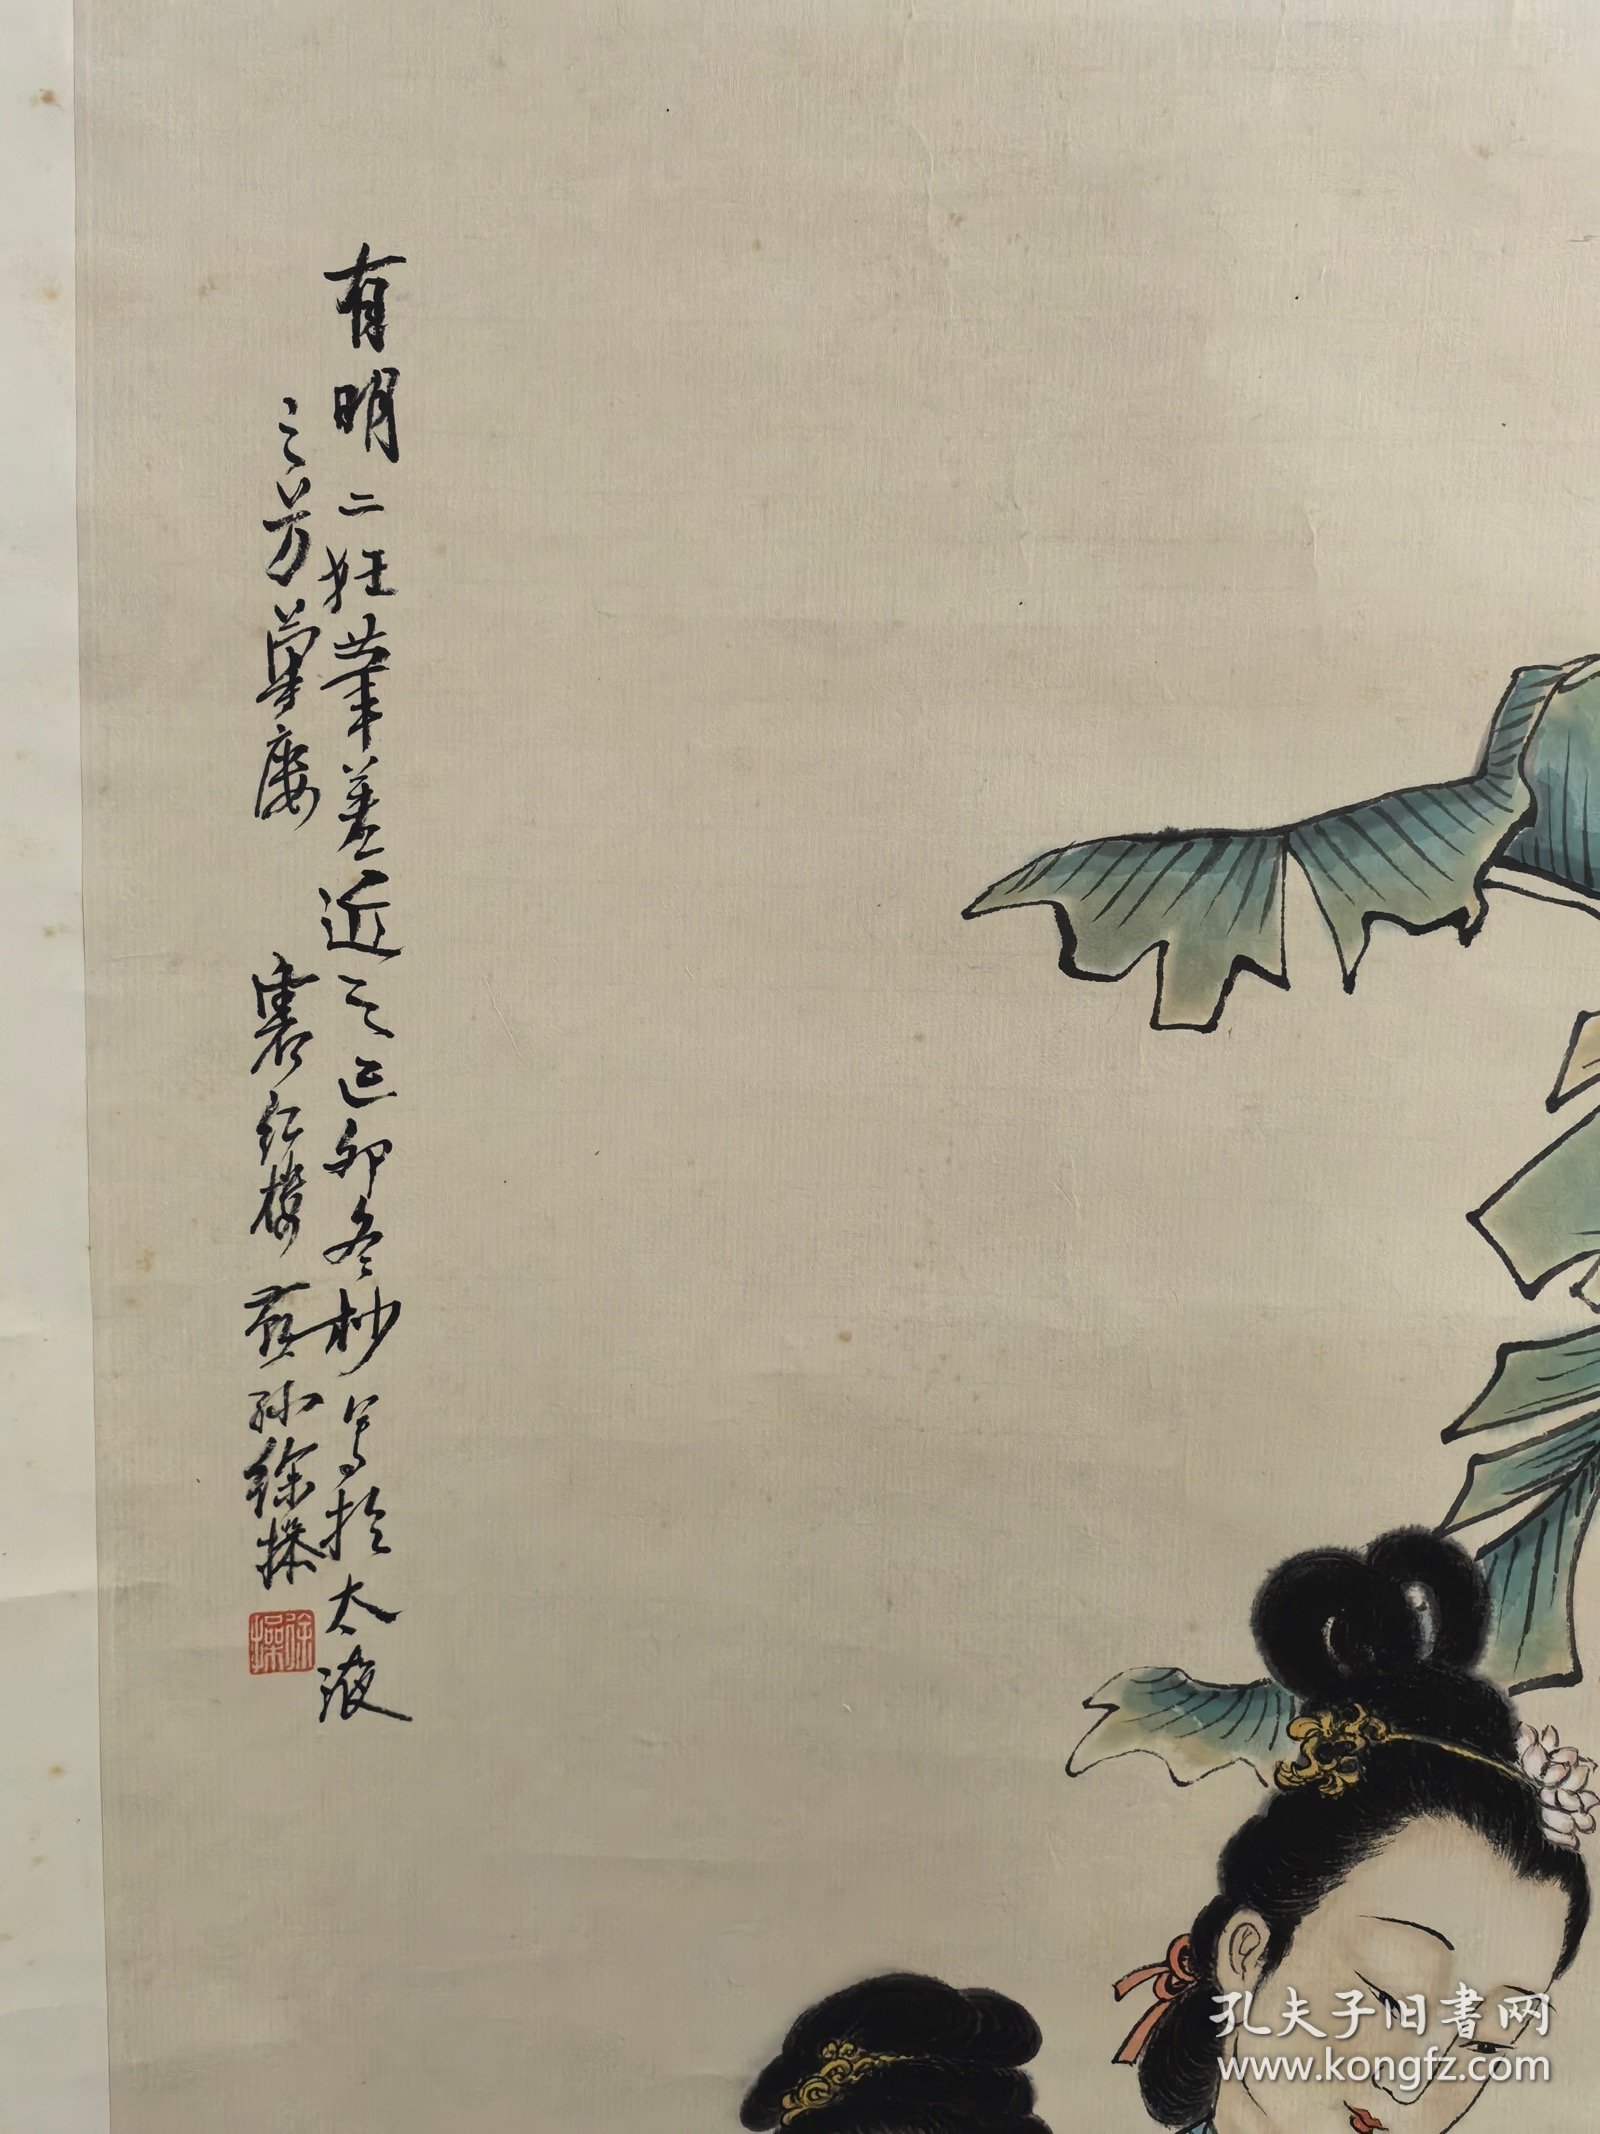 有明二狂筆蓋近之己卯冬杪写於太液
之芳 裳红楼 孙徐操
徐操
孔夫子旧書网
www.kongfz.com